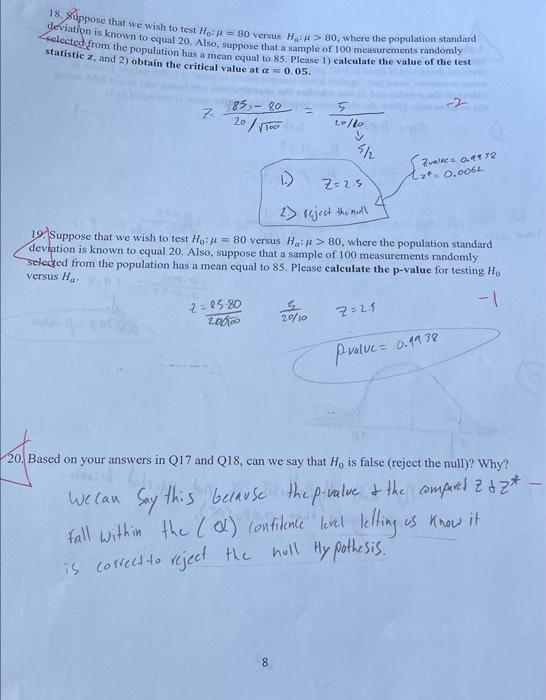 18. Suppose that we wish to test H₀: μ = 80 versus Hₐ: μ > 80, where the population standard
deviation is known to equal 20. Also, suppose that a sample of 100 measurements randomly
selected from the population has a mean equal to 85. Please 1) calculate the value of the test
statistic z, and 2) obtain the critical value at α = 0.05.
-2
Z = 85 - 80 / 20/√100 = 5 / 20/10
5/2
Zvalue = 0.9938
z* = 0.0062
1.) Z = 2.5
2) reject the null
19. Suppose that we wish to test H₀: μ = 80 versus Hₐ: μ > 80, where the population standard
deviation is known to equal 20. Also, suppose that a sample of 100 measurements randomly
selected from the population has a mean equal to 85. Please calculate the p-value for testing H₀
versus Hₐ.
-1
z = 85-80 / 20/√100 5 / 20/10 Z = 2.5
p-value = 0.9938
20. Based on your answers in Q17 and Q18, can we say that H₀ is false (reject the null)? Why?
We can say this because the p-value & the compared z & z* -
fall within the (α) confidence level letting us know it
is correct to reject the null Hypothesis.
8